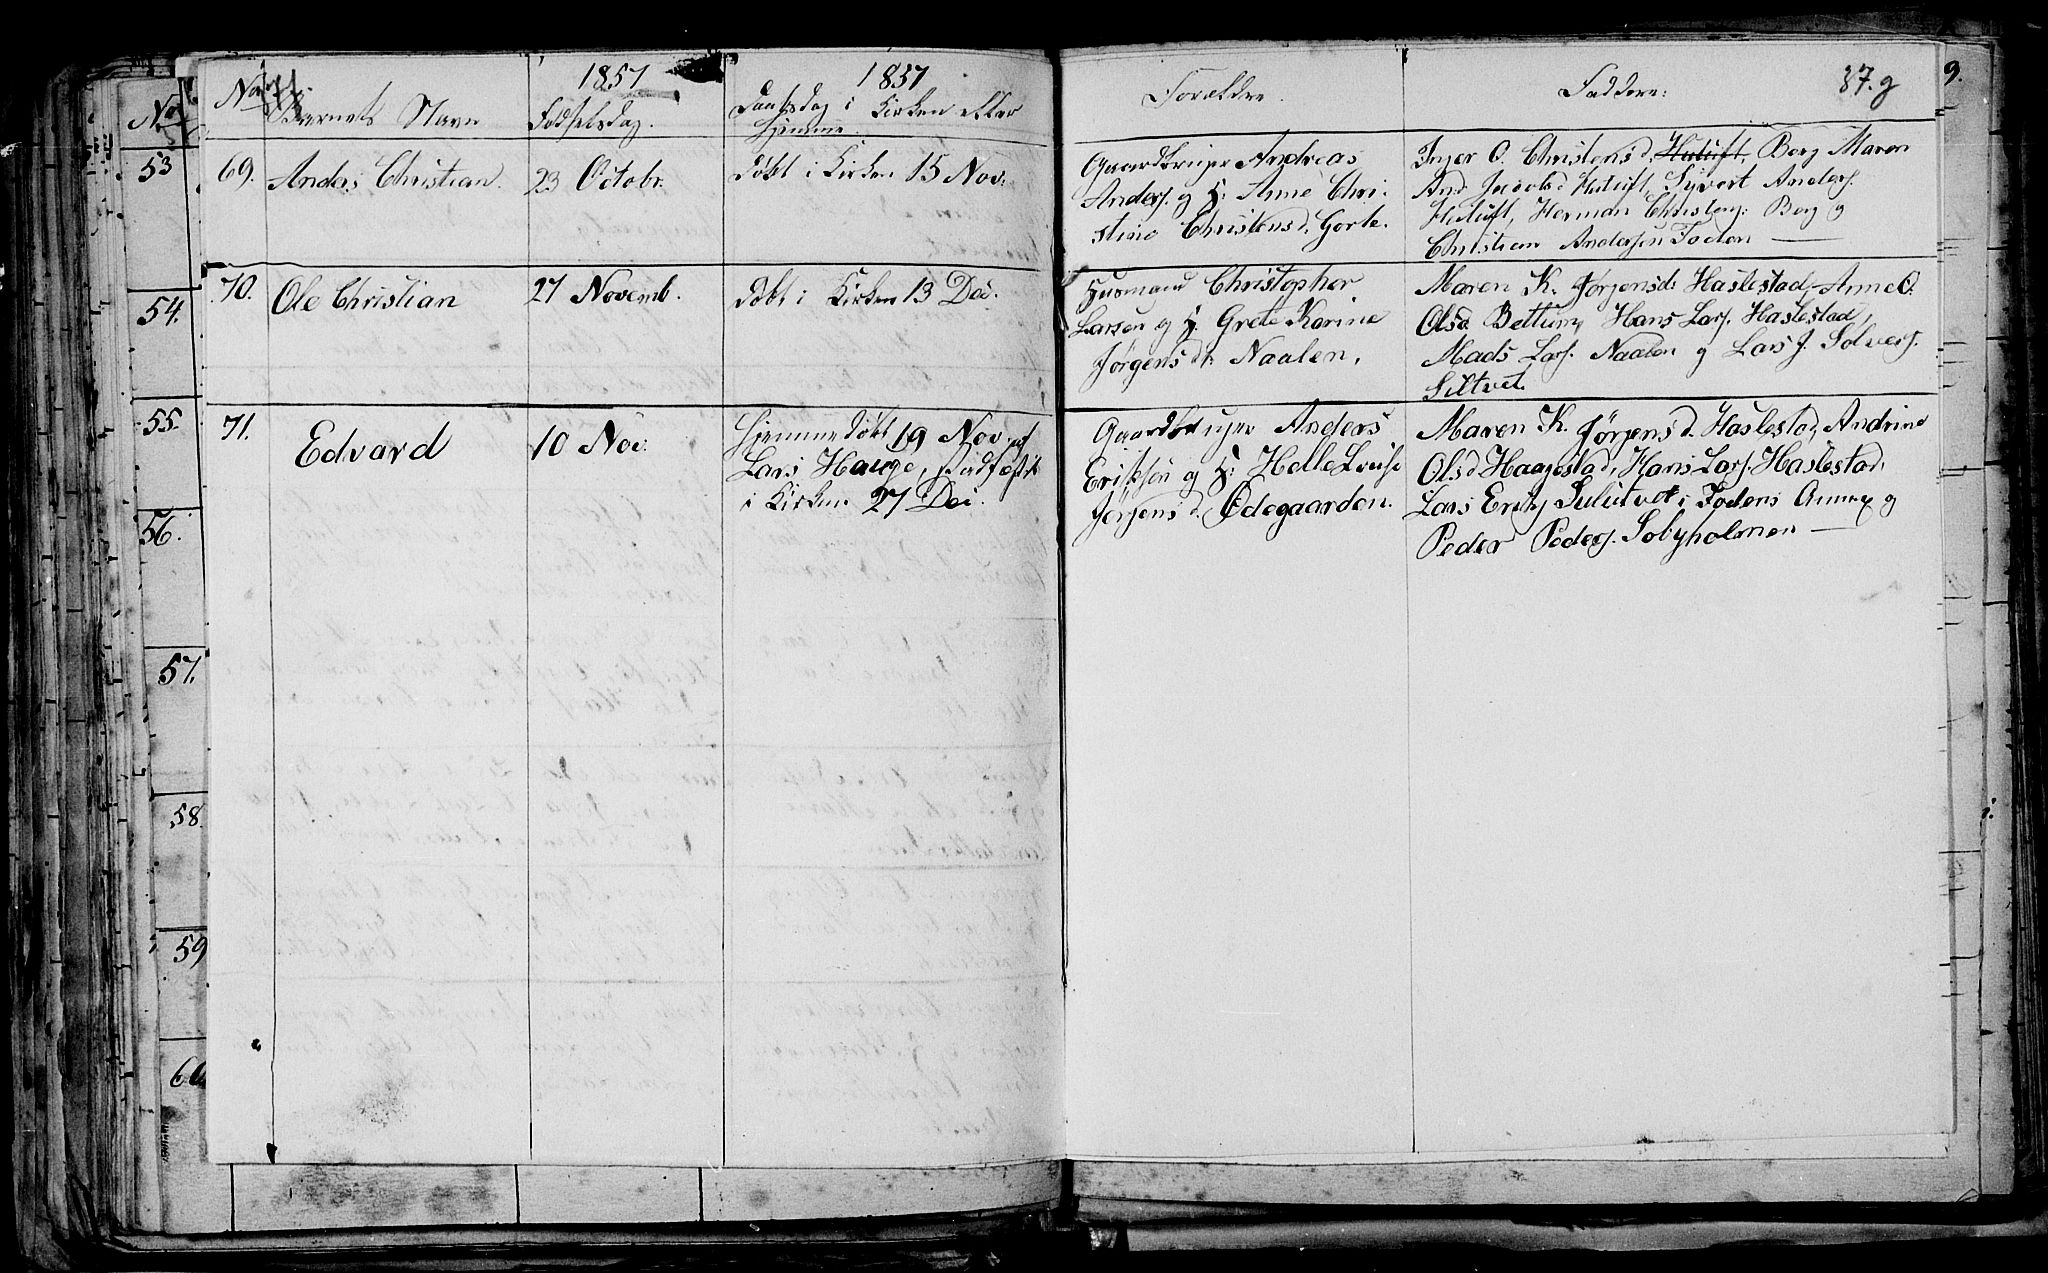 No
1857
1857
Barnets Navn
Fødselsdag.
Daabsdag i Kirken eller
Hjemme.
Forældre.
Faddere:
37.g
9.
No
53
54.
55.
56.
57.
58.
59
60
69. Anders Christian. 23 Octobr. døbt i Kirken 15 Nov:
Gaardbruger Andreas
Anders. og H. Anne Chri-
stine Christensd. Gorte.
Inger O. Christensd. Hutuft, Berg Maren
And. Jacobsd Hutuft, Syvert Anders.
Hutuft, Herman Christens: Berg og
Christian Andersen Foden
70. Ole Christian 27 Novemb. døbt i Kirken 13 Dec.
Husmand Christopher
Larsen og H. Grete Karine
Jørgensdt. Naalen.
Maren K. Jørgensd: Haslestad, Anne O.
Olsd Bettum, Hans Lars. Haslestad,
Mads Lars. Naalen og Lars J. Solvers.
Siltvet.
71. Edvard 10 Nov: Hjemmedøbt 19 Nov. af
Lars Hauge, stadfæstet
i Kirken 27 Dec.
Gaardbruger Anders
Eriksen og H: Helle Lovise
Jørgensd. Ødegaarden.
Maren K. Jørgensd. Haslestad, Andrine
Olsd Haagestad, Hans Lars. Haslestad,
Lars Eriks. og
Peder Peders. Sobyholmen